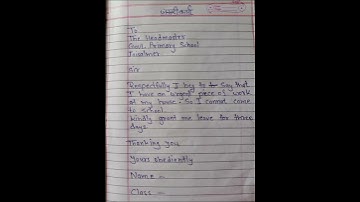 To
The Headmaster
Govt. Primary School
Sir
Respectfully I beg to say that
I have an urgent piece of work
at my house. So I cannot come
to school
kindly grant me leave for three
days.
Thanking you
Yours obediently
Name —
Class —